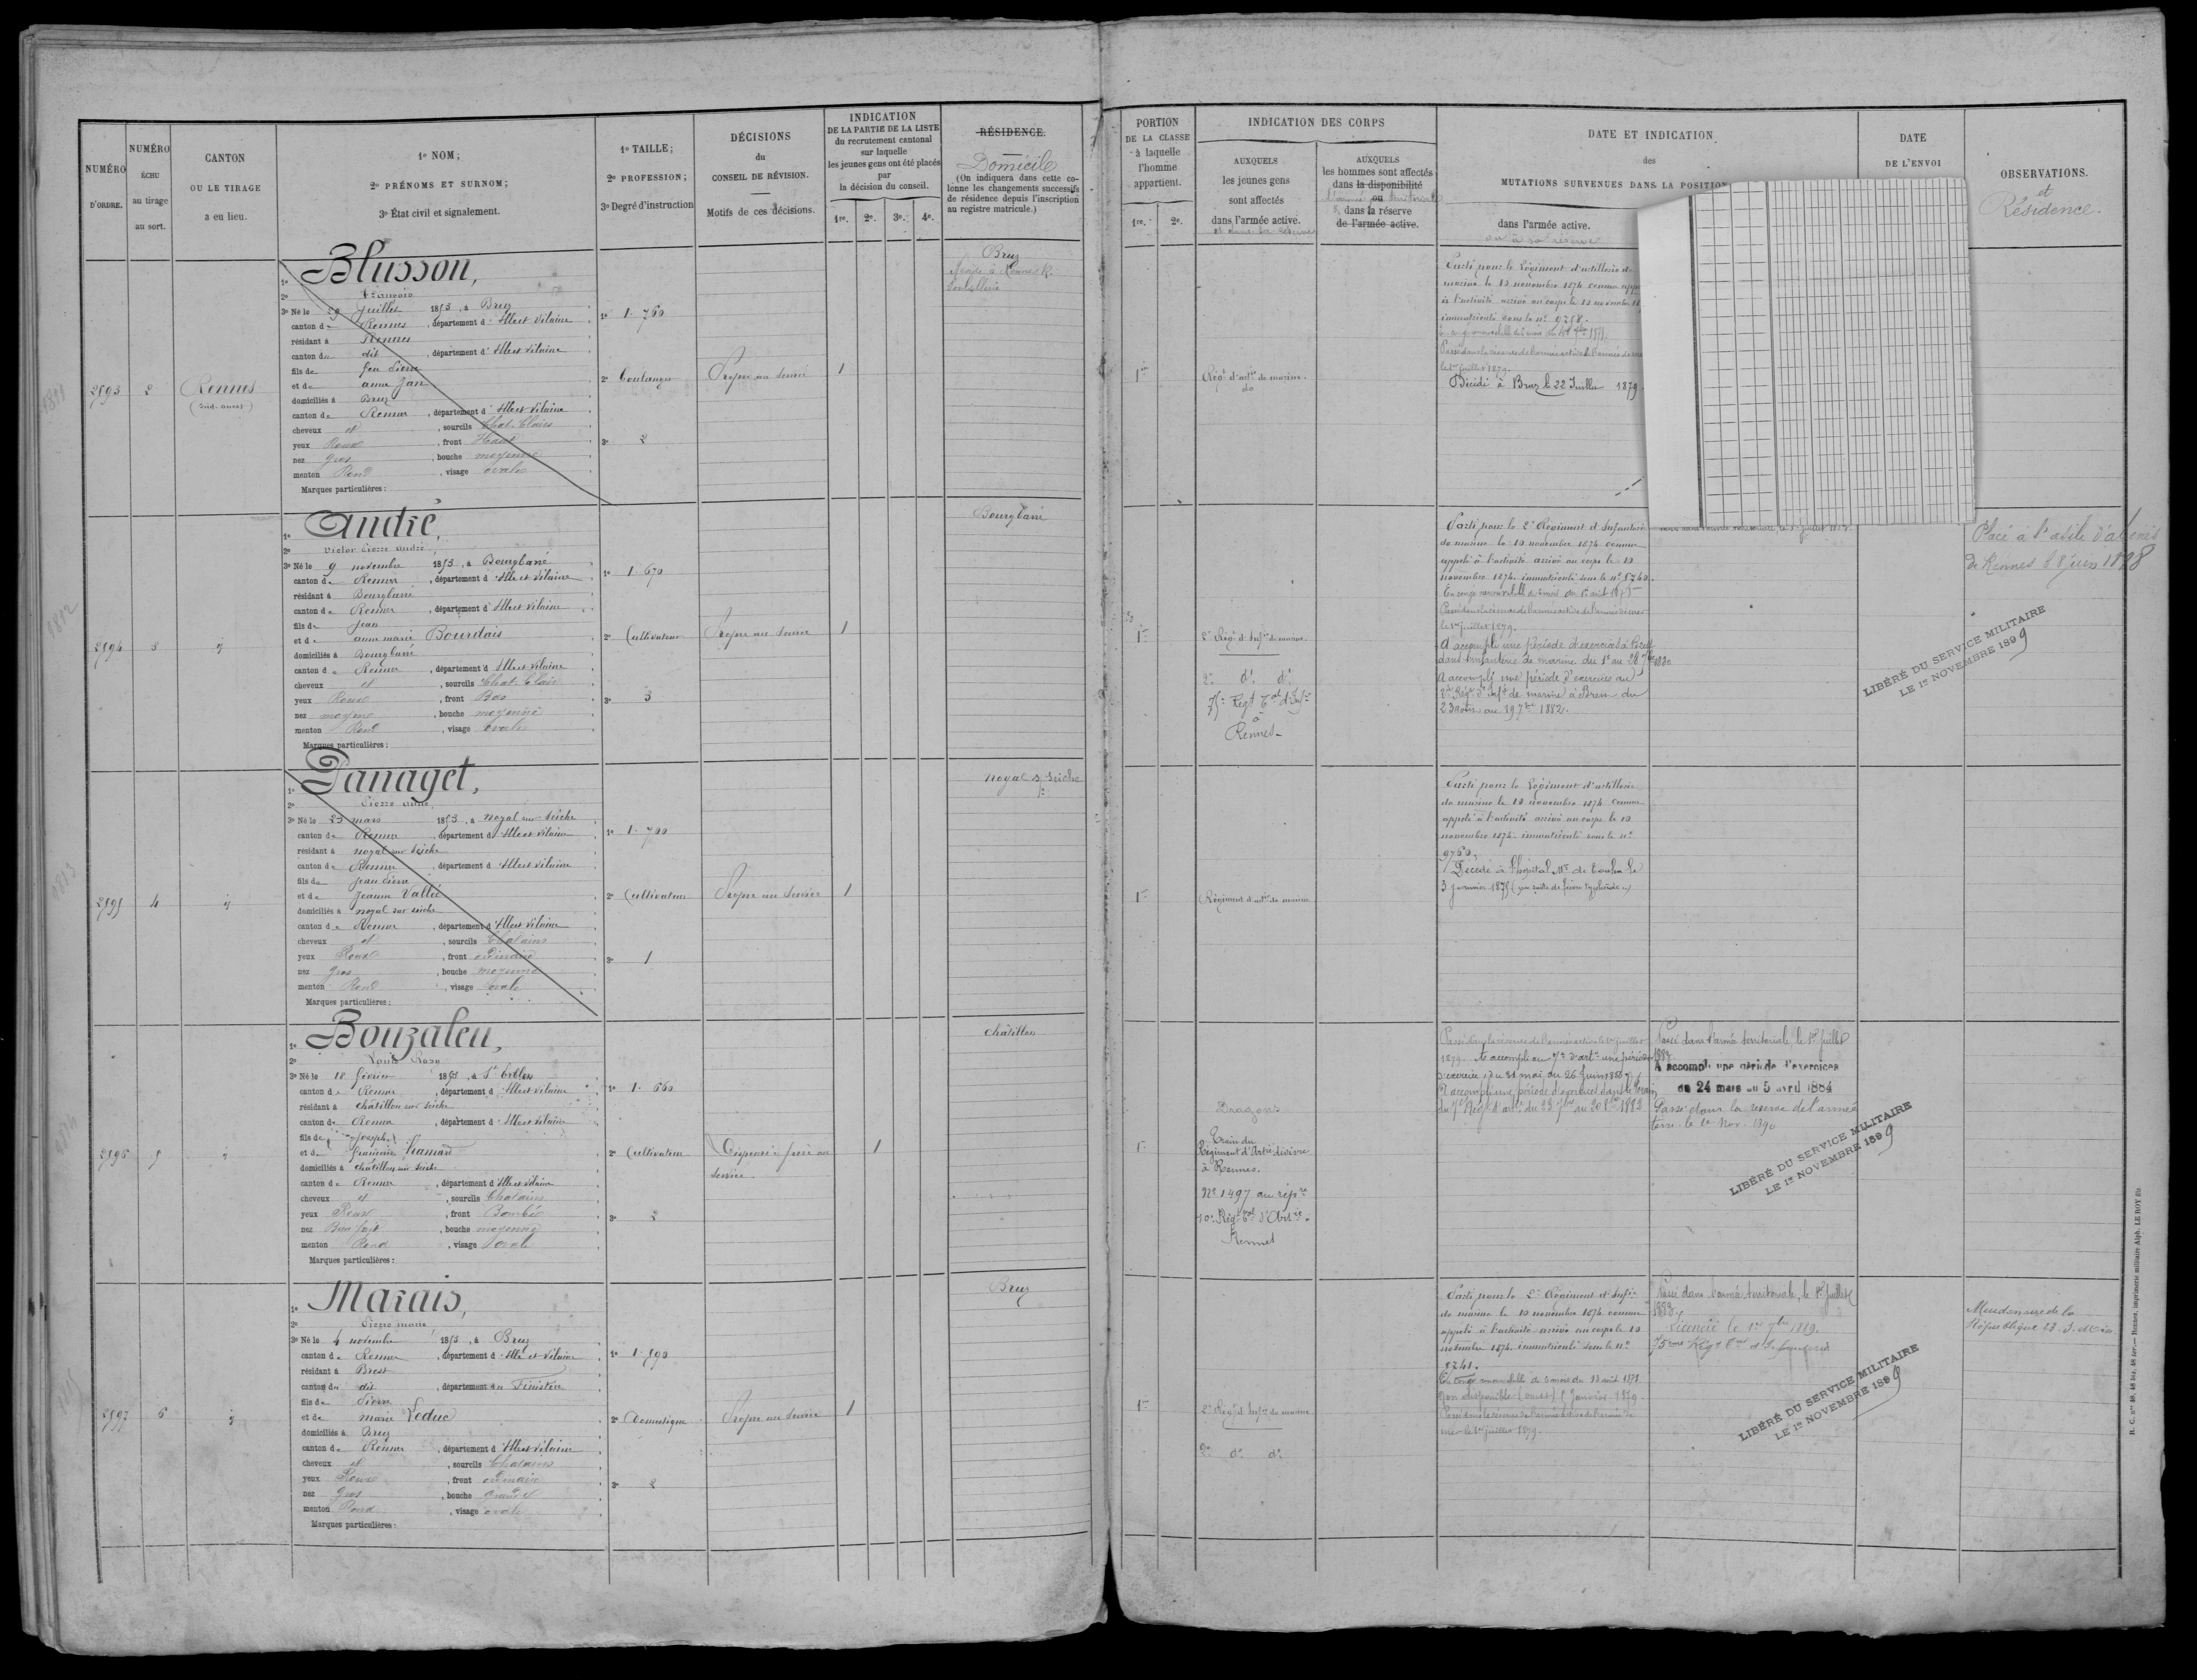 NUMÉRO
D'ORDRE.
NUMÉRO
ÉCHU
au tirage
au sort.
CANTON
OU LE TIRAGE
a eu lieu.
1º NOM;
2º PRÉNOMS ET SURNOM;
3º État civil et signalement.
1º TAILLE;
2º PROFESSION;
3º Degré d'instruction
DÉCISIONS
du
CONSEIL DE RÉVISION.
Motifs de ces décisions.
INDICATION
DE LA PARTIE DE LA LISTE
du recrutement cantonal
sur laquelle
les jeunes gens ont été placés
par
la décision du conseil.
1re. 2e. 3e. 4e.
RÉSIDENCE.
Domicile
(On indiquera dans cette co-
lonne les changements successifs
de résidence depuis l'inscription
au registre matricule.)
PORTION
DE LA CLASSE
à laquelle
l'homme
appartient.
1re. 2e.
INDICATION DES CORPS
AUXQUELS
les jeunes gens
sont affectés
dans l'armée active.
et dans la réserve
AUXQUELS
les hommes sont affectés
dans la disponibilité
ou
dans la réserve
de l'armée active.
DATE ET INDICATION
des
MUTATIONS SURVENUES DANS LA POSITION
dans l'armée active.
ou à sa réserve
DATE
DE L'ENVOI
OBSERVATIONS.
et
Résidence.
2893
2
Rennes
(Sud-ouest)
1º Blusson,
2º François
3º Né le 29 juillet 1853, à Bruz
canton de Rennes, département d'Ille et Vilaine
résidant à Rennes
canton du dit, département d'Ille et Vilaine
fils de feu Pierre
et de anne Jan
domiciliés à Bruz
canton de Rennes, département d'Ille et Vilaine
cheveux et, sourcils Chat. Clairs
yeux Roux, front Haut
nez gros, bouche moyenne
menton Rond, visage ovale
Marques particulières:
1º 1.760
2º boulanger
3º 2
Propre au service
1
Bruz
1re
Régt d'artie de marine
do
Parti pour le Régiment d'artillerie de
marine le 13 novembre 1874 comme
à l'activité arrivé au corps le 13 novembre
immatriculé sous le nº 9258.
Passé dans la réserve de l'armée active de l'armée de mer
le 1er juillet 1879.
Décédé à Bruz le 22 Juillet 1879
2894
3
d
1º André,
2º Victor Pierre André
3º Né le 9 novembre 1853, à Bourgbarré
canton de Rennes, département d'Ille et Vilaine
résidant à Bourgbarré
canton de Rennes, département d'Ille et Vilaine
fils de Jean
et de anne marie Bourdais
domiciliés à Bourgbarré
canton de Rennes, département d'Ille et Vilaine
cheveux et, sourcils Chat. Clair
yeux Roux, front Bas
nez moyen, bouche moyenne
menton Rond, visage ovale
Marques particulières:
1º 1.670
2º Cultivateur
3º 3
Propre au Service
1
Bourgbarré
1re
2e Régt d'Infie de marine
2e do do
75e Régt Tal d'Infie
à
Rennes
Parti pour le 2e Régiment d'Infanterie
de marine le 10 novembre 1874 comme
appelé à l'activité arrivé au corps le 10
novembre 1874 immatriculé sous le nº 5240.
En congé renouvelable de 6 mois
Passé dans la réserve de l'armée active de l'armée de mer
le 1er juillet 1879.
A accompli une période d'exercices à Brest
dans l'infanterie de marine du 1er au 28 7bre 1880
A accompli une période d'exercices au
2e Régt d'Infie de marine à Brest du
23 août au 19 7bre 1882.
Placé à l'asile d'aliénés
de Rennes le 8 juin 1898
LIBÉRÉ DU SERVICE MILITAIRE
LE 1er NOVEMBRE 1899
2895
4
d
1º Panaget,
2º Pierre Marie,
3º Né le 23 mars 1853, à noyal sur Seiche
canton de Rennes, département d'Ille et Vilaine
résidant à noyal sur Seiche
canton de Rennes, département d'Ille et Vilaine
fils de Jean Pierre
et de Jeanne Vallée
domiciliés à noyal sur seiche
canton de Rennes, département d'Ille et Vilaine
cheveux et, sourcils Chatains
yeux Roux, front ordinaire
nez gros, bouche moyenne
menton Rond, visage ovale
Marques particulières:
1º 1.700
2º Cultivateur
3º 1
Propre au Service
1
noyal s/ Seiche
1re
Régiment d'artie de marine
Parti pour le Régiment d'artillerie
de marine le 10 novembre 1874 comme
appelé à l'activité arrivé au corps le 10
novembre 1874 immatriculé sous le nº
9760.
Décédé à l'hôpital Me de Toulon le
3 janvier 1875 (par suite de fièvre typhoïde.)
2896
5
d
1º Bouzaleu,
2º Louis
3º Né le 18 février 1853, à St Erblon
canton de Rennes, département d'Ille et Vilaine
résidant à Châtillon sur Seiche
canton de Rennes, département d'Ille et Vilaine
fils de Joseph
et de françoise Hamon
domiciliés à Châtillon sur Seiche
canton de Rennes, département d'Ille et Vilaine
cheveux et, sourcils Chatains
yeux Roux, front Bombé
nez Bien fait, bouche moyenne
menton Rond, visage ovale
Marques particulières:
1º 1.660
2º Cultivateur
3º 2
Dispensé frère au
service
1
Châtillon
1re
Dragons
Train du
Régiment d'Artie divisre
à Rennes.
Nº 1497 au répre
10e Régt Tal d'Artie
Rennes
Passé dans la réserve de l'armée active le 1er juillet
1879. A accompli au 7e d'artie une période
d'exercices du 31 mai au 26 Juin 1880
A accompli une période d'exercices dans le train
du 7e Régt d'artie du 23 7bre au 20 8bre 1882
Passé dans l'armée territoriale, le 1er Juillet
1883
A accompli une période d'exercices
du 24 mars au 5 avril 1884
Passé dans la réserve de l'armée
terre. le 1er Nov. 1890
LIBÉRÉ DU SERVICE MILITAIRE
LE 1er NOVEMBRE 1899
2897
6
d
1º Marais,
2º Pierre Marie
3º Né le 4 novembre 1853, à Bruz
canton de Rennes, département d'Ille et Vilaine
résidant à Brest
canton du dit, département du Finistère
fils de Pierre
et de marie Leduc
domiciliés à Bruz
canton de Rennes, département d'Ille et Vilaine
cheveux et, sourcils Chatains
yeux Roux, front ordinaire
nez gros, bouche Grande
menton Rond, visage ovale
Marques particulières:
1º 1.590
2º Domestique
3º 2
Propre au Service
1
Bruz
1re
2e Régt d'Infie de marine
2e do do
Parti pour le 2e Régiment d'Infie
de marine le 10 novembre 1874 comme
appelé à l'activité arrivé au corps le 10
novembre 1874 immatriculé sous le nº
5241.
En congé renouvelable de 6 mois du 13 août 1878.
Passé dans la réserve de l'armée active de l'armée de
mer le 1er juillet 1879.
Passé dans l'armée territoriale, le 1er Juillet
1883.
Licencié le 1er 7bre 1889.
75eme Régt Tal d'Infanterie
LIBÉRÉ DU SERVICE MILITAIRE
LE 1er NOVEMBRE 1899
République
N. C. nos 48, 48 bis, 48 ter. — Rennes, imprimerie militaire Alph. LE ROY fils